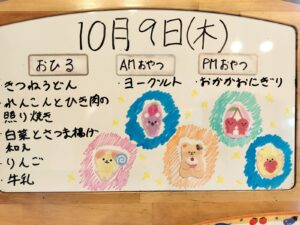 10月9日(木)
おひる
・きつねうどん
・れんこんとひき肉の
照り焼き
・白菜とさつま揚げ
和え
・りんご
・牛乳
AMおやつ
・ヨークルト
PMおやつ
・おかかおにぎり